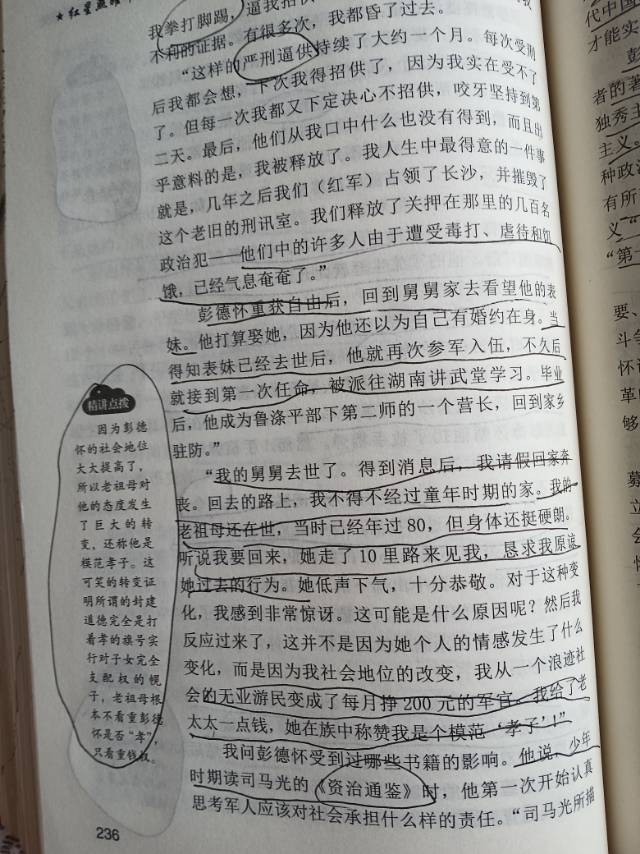 ★红星照耀
我拳打脚踢，逼我招供
不利的证据。有很多次，我都昏了过去。
“这样的严刑逼供持续了大约一个月。每次受刑
后我都会想，下次我得招供了，因为我实在受不了
了。但每一次我都又下定决心不招供，咬牙坚持到第
二天。最后，他们从我口中什么也没有得到，而且出
乎意料的是，我被释放了。我人生中最得意的一件事
就是，几年之后我们（红军）占领了长沙，并摧毁了
这个老旧的刑讯室。我们释放了关押在那里的几百名
政治犯——他们中的许多人由于遭受毒打、虐待和饥
饿，已经气息奄奄了。”
彭德怀重获自由后，回到舅舅家去看望他的表
妹。他打算娶她，因为他还以为自己有婚约在身。当
得知表妹已经去世后，他就再次参军入伍，不久后
就接到第一次任命，被派往湖南讲武堂学习。毕业
后，他成为鲁涤平部下第二师的一个营长，回到家乡
驻防。”
“我的舅舅去世了。得到消息后，我请假回家奔
丧。回去的路上，我不得不经过童年时期的家。我的
老祖母还在世，当时已经年过80，但身体还挺硬朗。
听说我要回来，她走了10里路来见我，恳求我原谅
她过去的行为。她低声下气，十分恭敬。对于这种变
化，我感到非常惊讶。这可能是什么原因呢？然后我
反应过来了，这并不是因为她个人的情感发生了什么
变化，而是因为我社会地位的改变，我从一个浪迹社
会的无业游民变成了每月挣200元的军官。我给了老
太太一点钱，她在族中称赞我是个模范‘孝子’！”
我问彭德怀受到过哪些书籍的影响。他说，少年
时期读司马光的《资治通鉴》时，他第一次开始认真
思考军人应该对社会承担什么样的责任。“司马光所描
精讲点拨
因为彭德
怀的社会地位
大大提高了，
所以老祖母对
他的态度发生
了巨大的转
变，还称他是
模范孝子。这
可笑的转变证
明所谓的封建
道德完全是打
着孝的旗号实
行对子女完全
支配权的幌
子，老祖母根
本不看重彭德
怀是否“孝”，
只看重钱权。
236
代中国
才能实
彭
者的著
独秀主
主义。
种政治
有所
义”
“第一
要、
斗争
怀
革
够
募
立
会